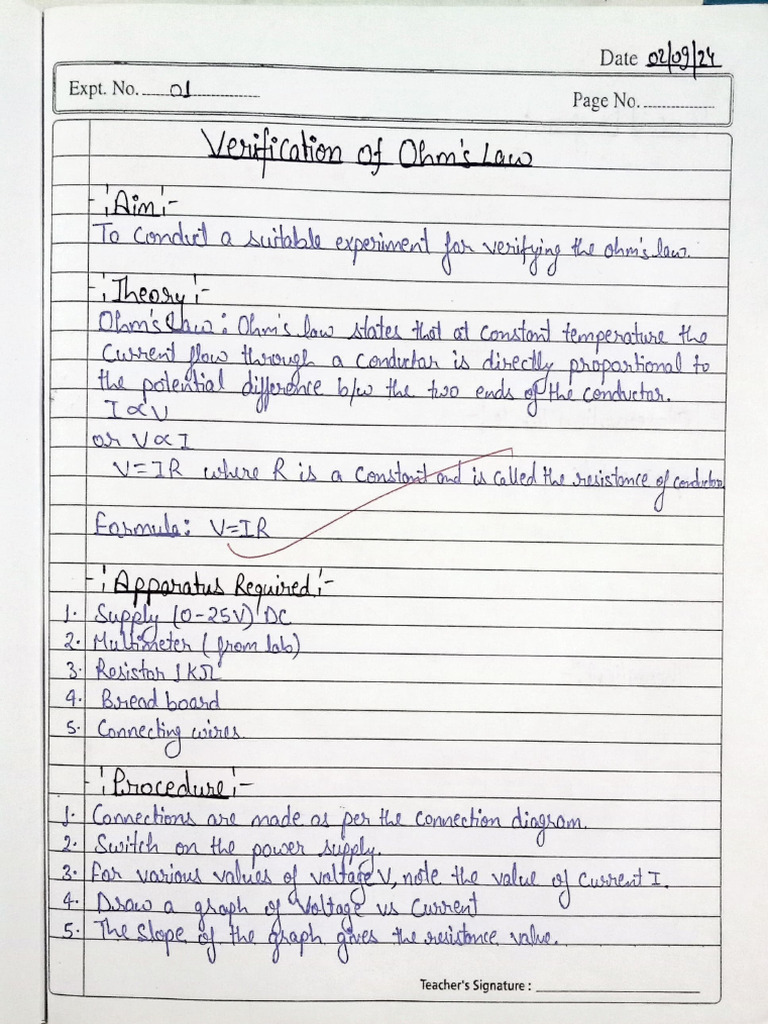 Date 02/09/24
Expt. No. 01
Page No.
Verification of Ohm's Law
-¦Aim¦-
To Conduct a suitable experiment for verifying the ohm's law.
-¦Theory¦-
Ohm's Law: Ohm's law states that at constant temperature the
current flow through a conductor is directly proportional to
the potential difference b/w the two ends of the conductor.
I ∝ V
or V ∝ I
V = IR where R is a constant and is called the resistance of conductor
Formula: V=IR
-¦Apparatus Required¦-
1. Supply (0-25V) DC
2. Multimeter (from lab)
3. Resistor 1kΩ
4. Bread board
5. Connecting wires.
-¦Procedure¦-
1. Connections are made as per the connection diagram.
2. Switch on the power supply.
3. For various values of voltage V, note the value of current I.
4. Draw a graph of Voltage vs Current
5. The Slope of the graph gives the resistance value.
Teacher's Signature :